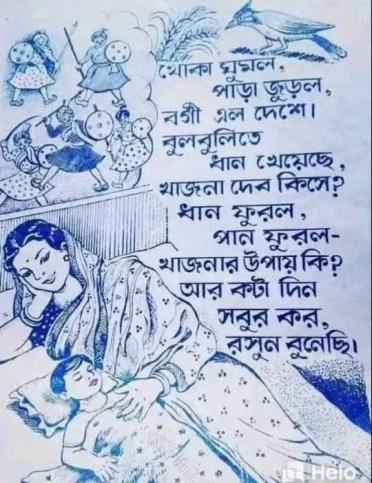 খোকা ঘুমল,
পাড়া জুড়ল,
বর্গী এল দেশে।
বুলবুলিতে
ধান খেয়েছে,
খাজনা দেব কিসে?
ধান ফুরল,
পান ফুরল-
খাজনার উপায় কি?
আর কটা দিন
সবুর কর,
রসুন বুনেছি।
Helo